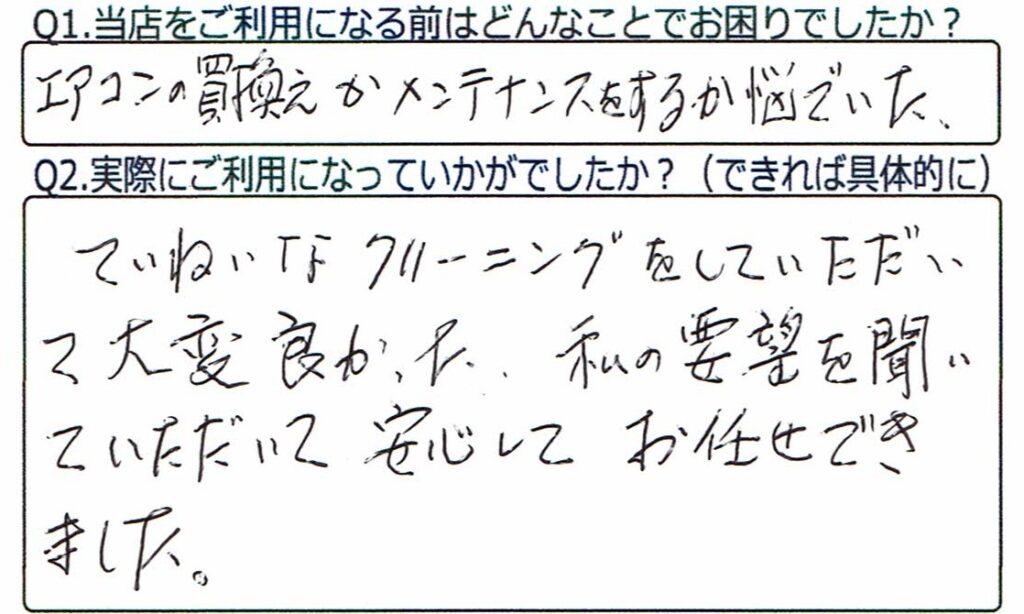 Q1.当店をご利用になる前はどんなことでお困りでしたか？
エアコンの買換えかメンテナンスをするか悩でいた、
Q2.実際にご利用になっていかがでしたか？（できれば具体的に）
ていねいなクリーニングをしていただい
て大変良かった、私の要望を聞い
ていただいて安心してお任せでき
ました。